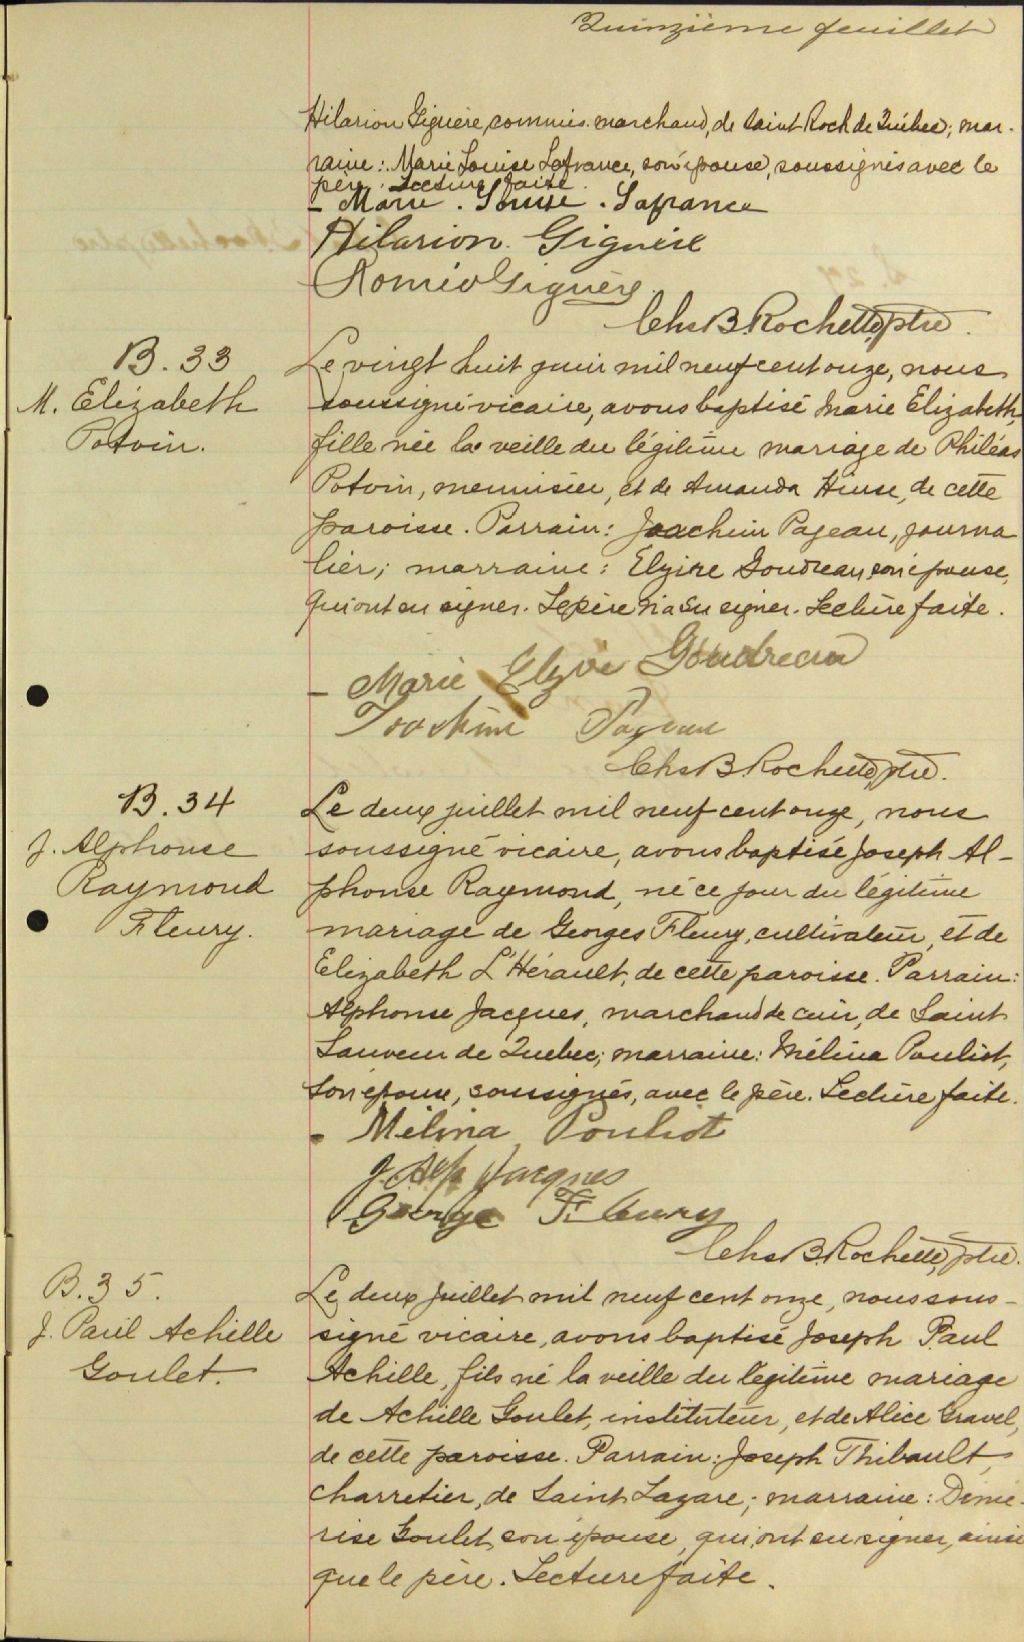 Quinzième feuillet
Hilarion Giguère, commis-marchand, de Saint Roch de Québec; mar-
raine: Marie Louise Lafrance, son épouse, soussignés avec le
père. Lecture faite.
- Marie. Louise. Lafrance
Hilarion. Giguère
Roméo Giguère
Chs B. Rochette, ptre.
B. 33
M. Elizabeth
Potvin.
Le vingt huit juin mil neuf cent onze, nous
soussigné vicaire, avons baptisé Marie Elizabeth,
fille née la veille du légitime mariage de Philéas
Potvin, menuisier, et de Amanda Hinse, de cette
paroisse. Parrain: Joachim Pageau, journa
lier; marraine: Elzire Goudreau son épouse,
qui ont su signer. Le père n'a su signer. Lecture faite.
- Marie Elzire Goudreau
Joachim Pageau
Chs B. Rochette, ptre.
B. 34
J. Alphonse
Raymond
Fleury.
Le deux juillet mil neuf cent onze, nous
soussigné vicaire, avons baptisé Joseph Al-
phonse Raymond, né ce jour du légitime
mariage de Georges Fleury, cultivateur, et de
Elizabeth L'Hérault, de cette paroisse. Parrain:
Alphonse Jacques, marchand de cuir, de Saint
Sauveur de Québec; marraine: Mélina Pouliot,
son épouse, soussignés, avec le père. Lecture faite.
Mélina Pouliot
J. Alp Jacques
George Fleury
Chs B. Rochette, ptre.
B. 35.
J. Paul Achille
Goulet.
Le deux juillet mil neuf cent onze, nous sous-
signé vicaire, avons baptisé Joseph Paul
Achille, fils né la veille du légitime mariage
de Achille Goulet, instituteur, et de Alice Gravel,
de cette paroisse. Parrain: Joseph Thibault,
charretier, de Saint Lazare; marraine: Dimé-
rise Goulet, son épouse, qui ont su signer, ainsi
que le père. Lecture faite.